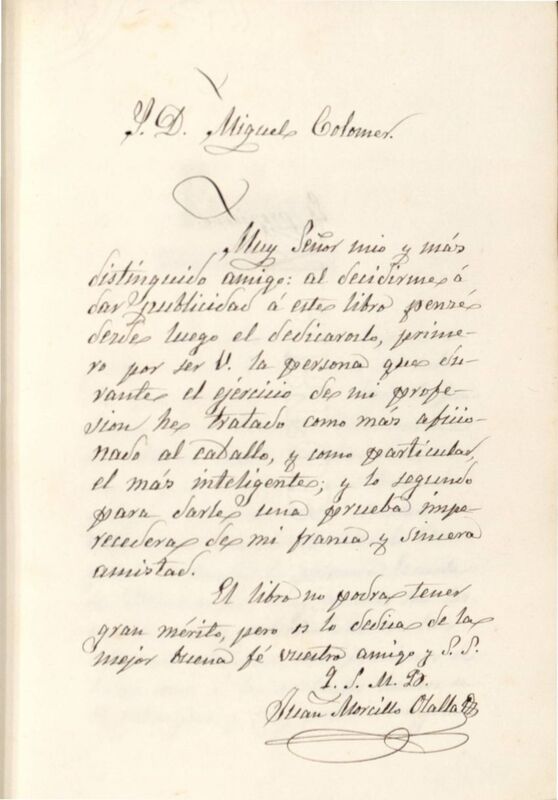 S. D. Miguel Colomer.
Muy Señor mio y más
distinguido amigo: al decidirme á
dar publicidad á este libro pensé
desde luego el dedicaroslo, prime-
ro por ser V. la persona que du-
rante el ejercicio de mi profe-
sion he tratado como más aficio-
nado al caballo, y como particular,
el más inteligente; y lo segundo
para darle una prueba impe-
recedera de mi franca y sincera
amistad.
El libro no podra tener
gran mérito, pero os lo dedica de la
mejor buena fé vuestro amigo y S. S.
Q. S. M. B.
Juan Morcillo Olalla